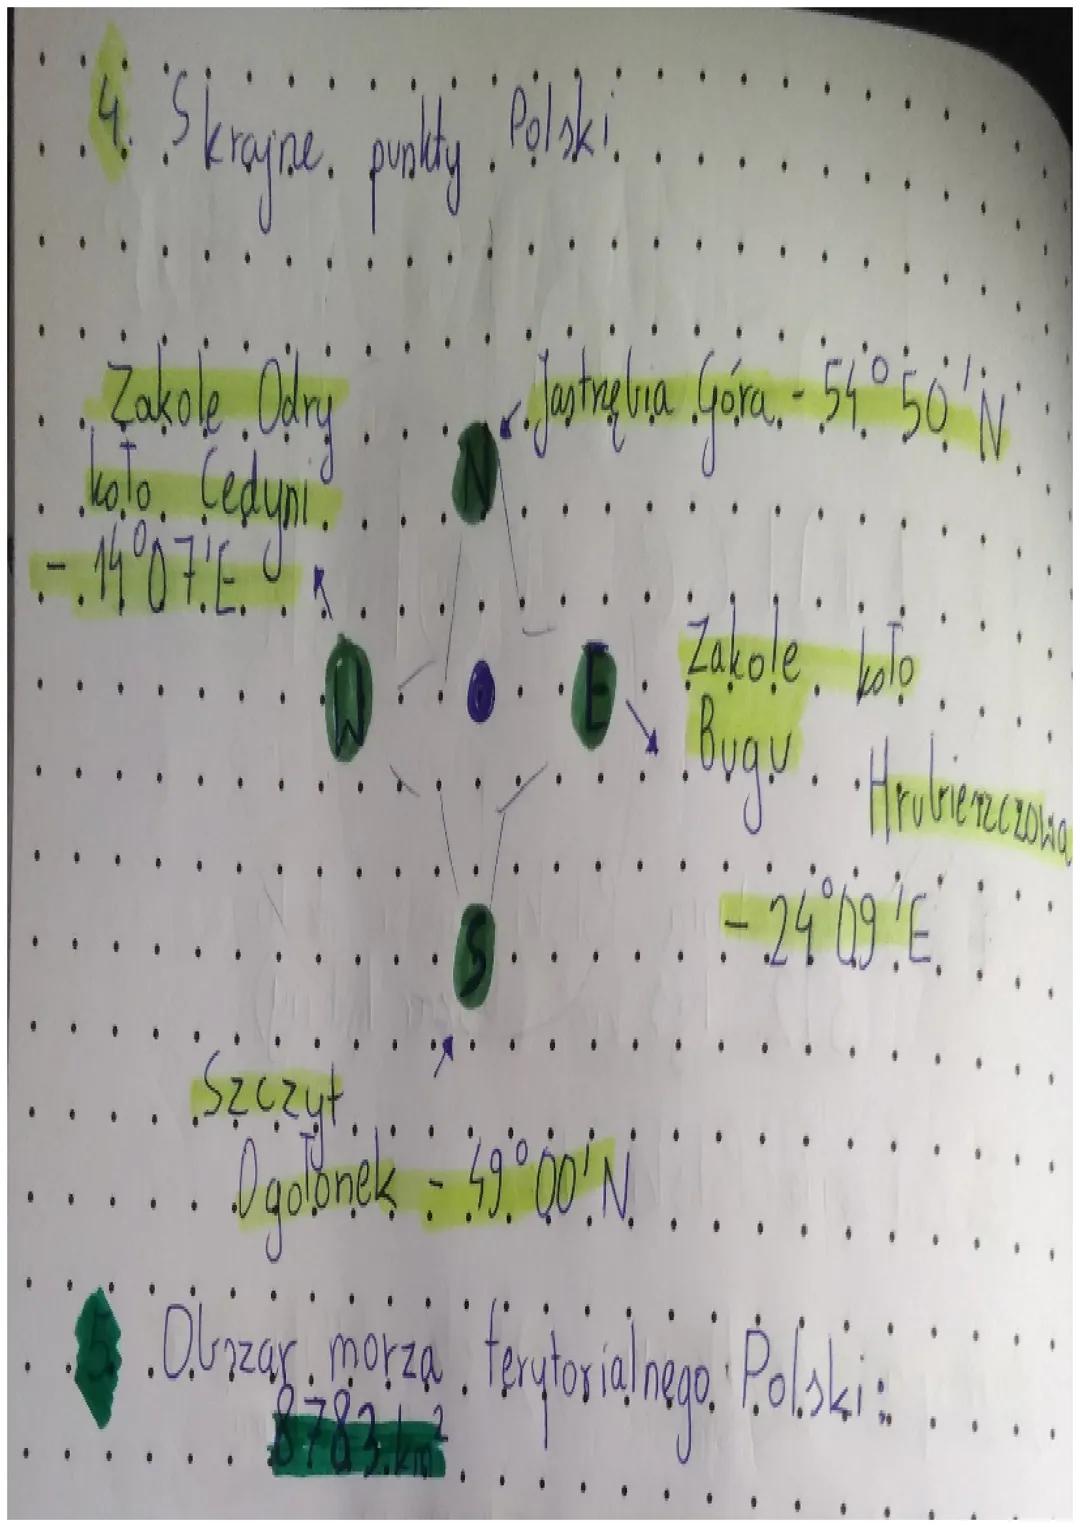 4. Skrajne punkty Polski
Zakole Odry
koło Cedyni
- 14°07'E
Jastrzębia Góra - 54°50'N
N
W
E
Zakole koło
Bugu
Hrubieszczowa
- 24°09'E
S
Szczyt
Ogołonek - 49°00'N
5. Obszar morza terytorialnego Polski:
8783 km²